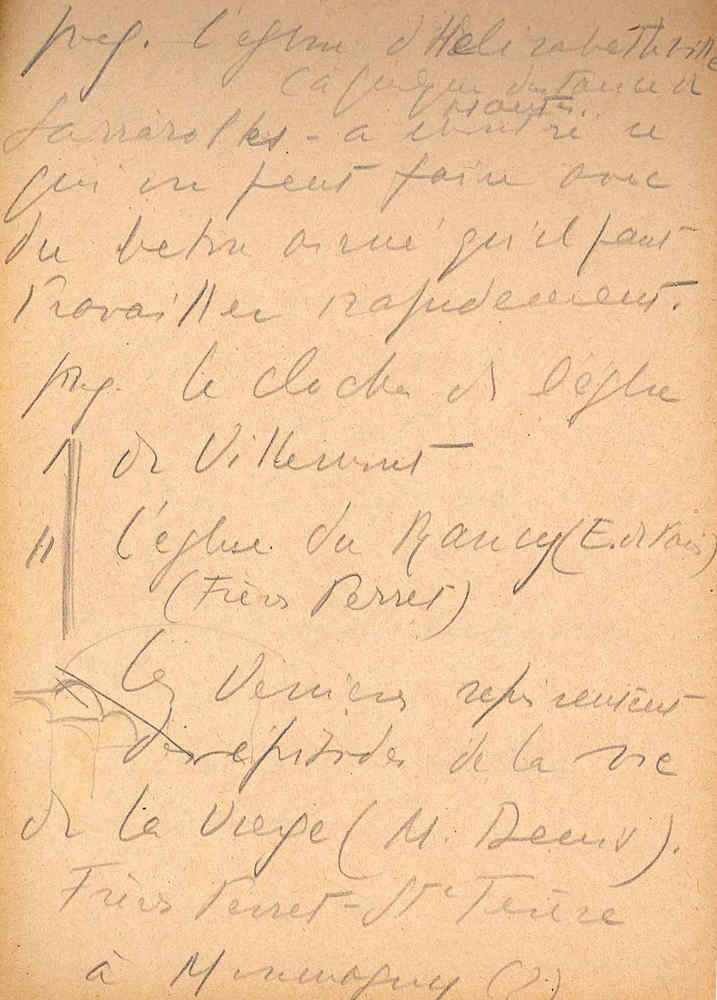 proj. l'église d'Hélisabethville
(à quelque distance de
Mantes..
Sarrabolles - a montré ce
qui on peut faire avec
du béton armé qu'il faut
travailler rapidement.
proj. le clocher de l'église
I de Villemomt
II l'église du Raincy (E. de Paris)
(Frères Perret)
Les verrières représentent
des épisodes de la vie
de la Vierge (M. Denis).
Frères Perret - Ste Terèse
à M